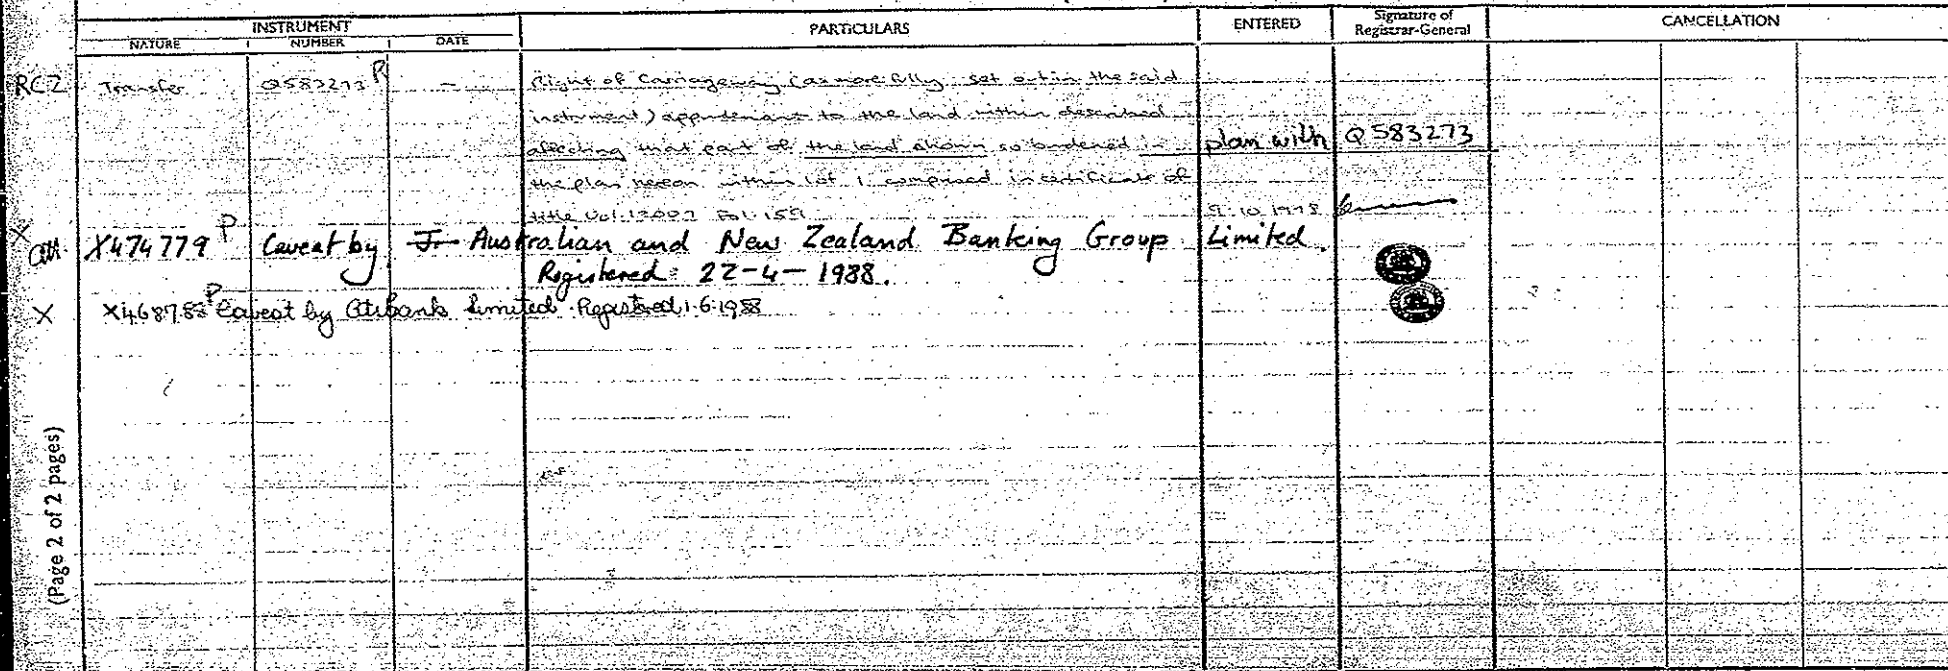 INSTRUMENT PARTICULARS ENTERED Signature of Registrar-General CANCELLATION
NATURE NUMBER DATE
RC2 Transfer Q583273 R — Right of Carriageway (as more fully set out in the said
instrument) appurtenant to the land within described
affecting that part of the land shown so burdened in plan with Q583273
the plan hereon within lot 1 comprised in certificate of
title Vol. Fol. 159 9.10.1978
X X474779 P Caveat by Australian and New Zealand Banking Group Limited.
Registered 22-4-1988.
X P Caveat by Citibank Limited. Registered 1.6.1988
(Page 2 of 2 pages)